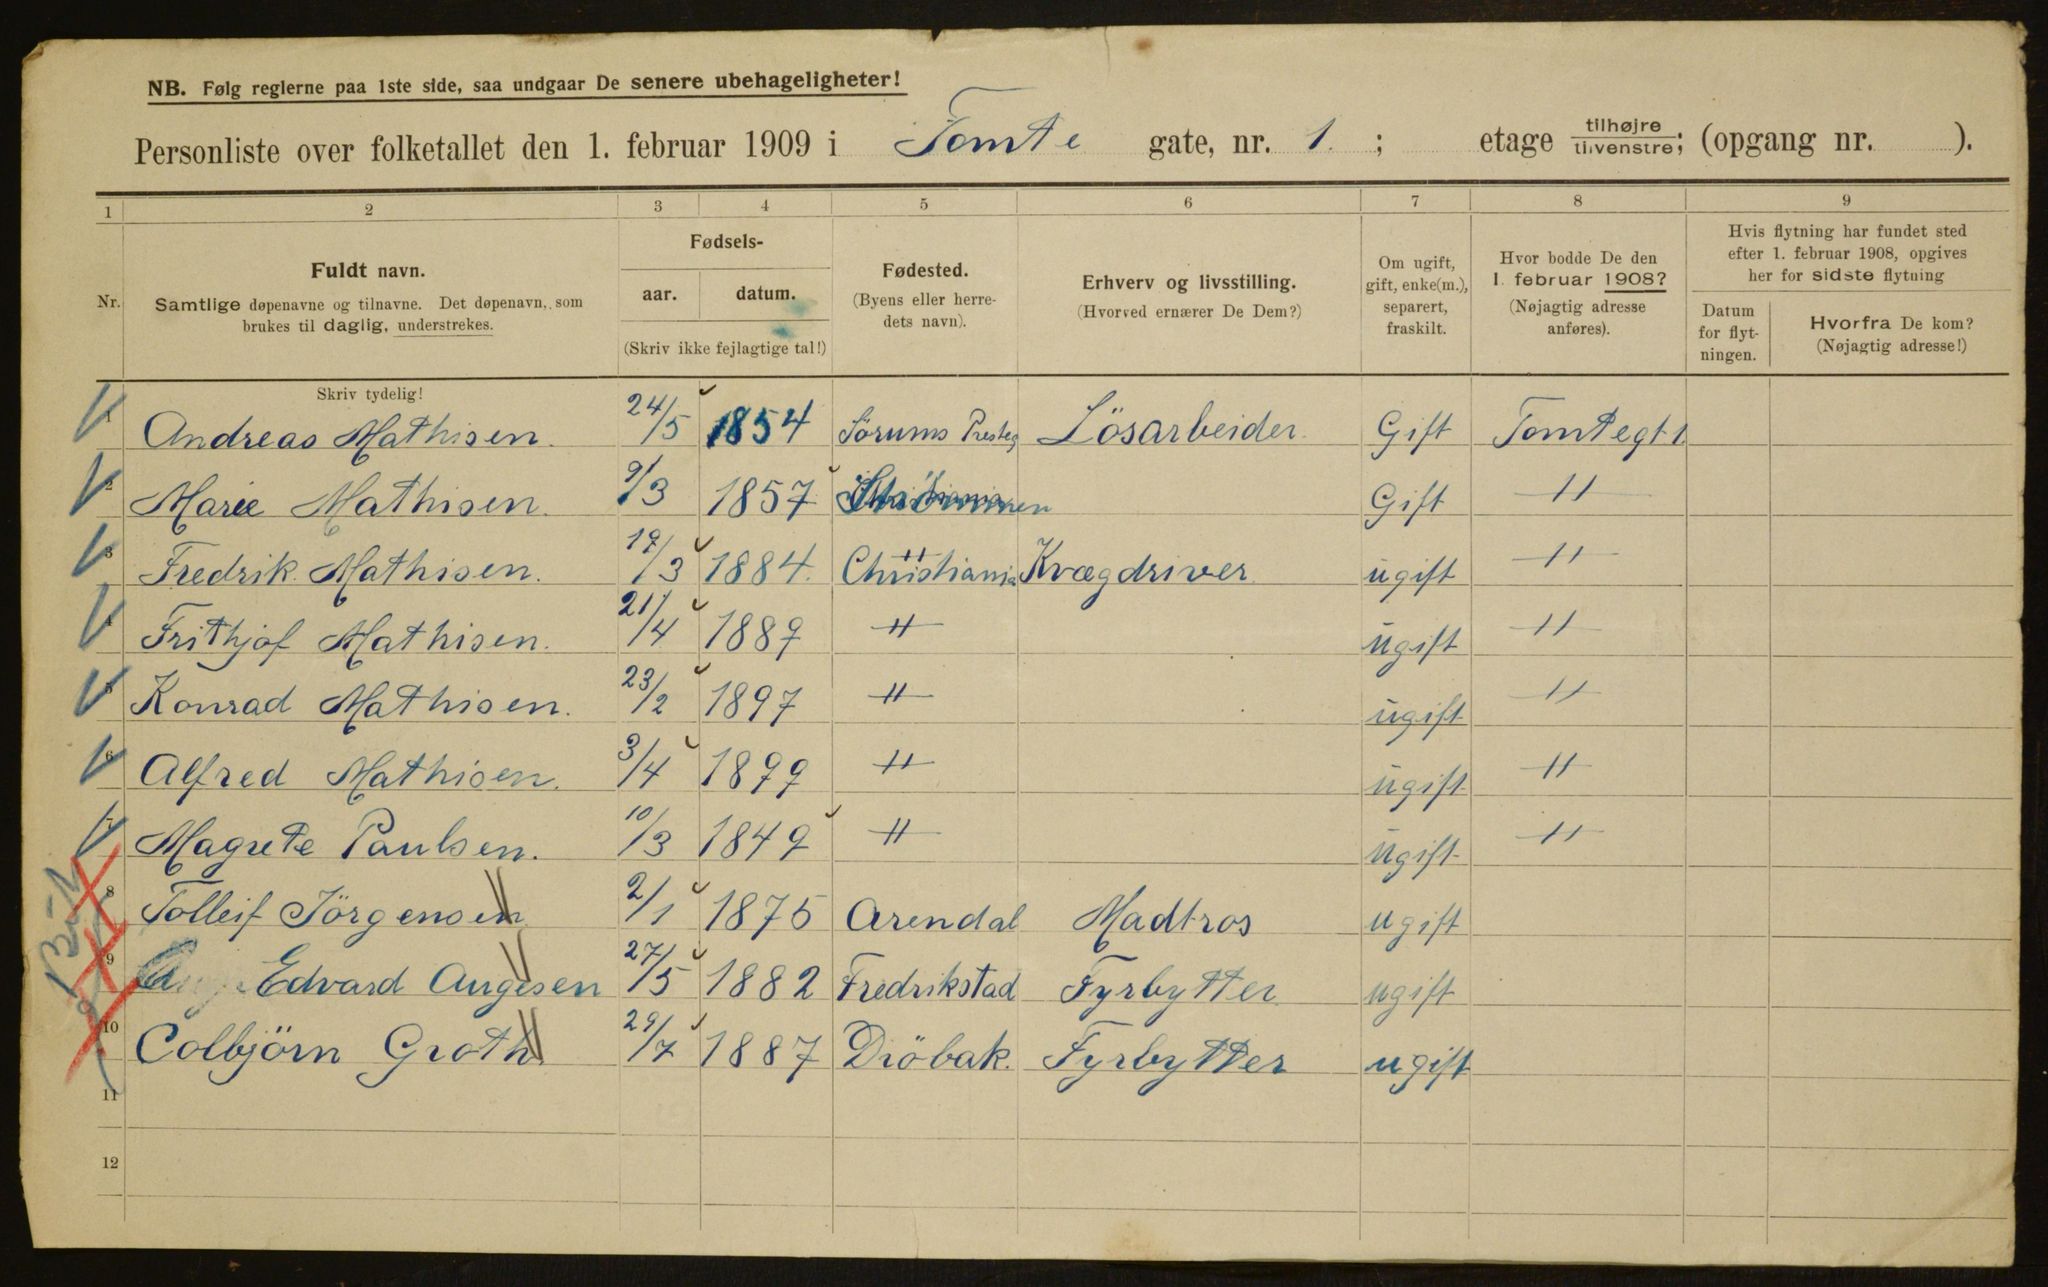 NB. Følg reglerne paa 1ste side, saa undgaar De senere ubehageligheter!
Personliste over folketallet den 1. februar 1909 i Tomte gate, nr. 1. ; etage tilhøjre tilvenstre; (opgang nr. ).
1 2 3 4 5 6 7 8 9
Nr. Fuldt navn. Samtlige døpenavne og tilnavne. Det døpenavn, som brukes til daglig, understrekes.
Fødsels- aar. datum. (Skriv ikke fejlagtige tal!)
Fødested. (Byens eller herredets navn).
Erhverv og livsstilling. (Hvorved ernærer De Dem?)
Om ugift, gift, enke(m.), separert, fraskilt.
Hvor bodde De den 1. februar 1908? (Nøjagtig adresse anføres).
Hvis flytning har fundet sted efter 1. februar 1908, opgives her for sidste flytning
Datum for flytningen. Hvorfra De kom? (Nøjagtig adresse!)
Skriv tydelig!
1 Andreas Mathisen. 24/5 1854 Sørums Presteg Lösarbeider. Gift Tomtegt 1
2 Marie Mathisen. 9/3 1857 Strömmen Gift "
3 Fredrik Mathisen. 19/3 1884. Christiania Kvægdriver ugift "
4 Frithjof Mathisen. 21/4 1889 " ugift "
5 Konrad Mathisen. 23/2 1897 " ugift "
6 Alfred Mathisen. 3/4 1899 " ugift "
7 Magrete Paulsen. 10/3 1849 " ugift "
8 Tolleif Jörgensen 2/1 1875 Arendal Madtros ugift
9 Edvard Augesen 27/5 1882 Fredrikstad Fyrbytter ugift
10 Colbjörn Groth 29/7 1887 Dröbak. Fyrbytter ugift
11
12